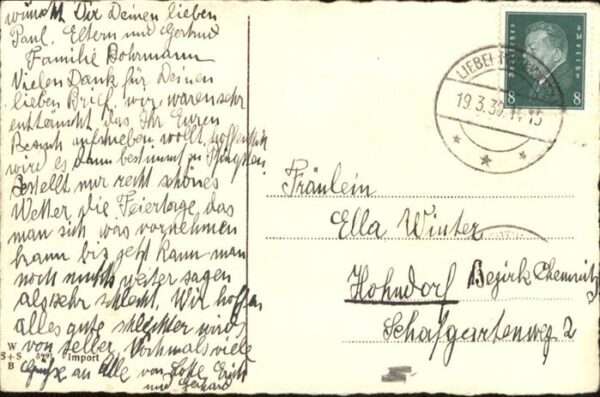 wünscht Dir Deinen lieben
Paul. Eltern und Gertrud
Familie Dohrmann
Vielen Dank für Deinen
lieben Brief, wir waren sehr
enttäuscht das Ihr Euren
Besuch aufschieben wollt, hoffentlich
wird es dann bestimmt zu Pfingsten.
Bestellt nur recht schönes
Wetter die Feiertage, das
man sich was vornehmen
kann bis jetzt kann man
noch nichts weiter sagen
als sehr schlecht. Wir hoffen
alles gute schlechter wird
von selber. Nochmals viele
Grüße an Alle von Lotte Erich
und Gerhard
W
S+S
B
Import
19.3.30.
8
8
Fräulein
Ella Winter
Hohndorf Bezirk Chemnitz
Schafgartenweg 2